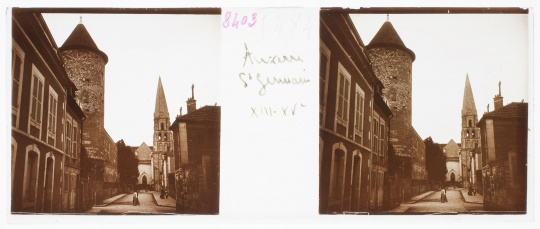 8403
Auxerre
St Germain
XIII-XVe